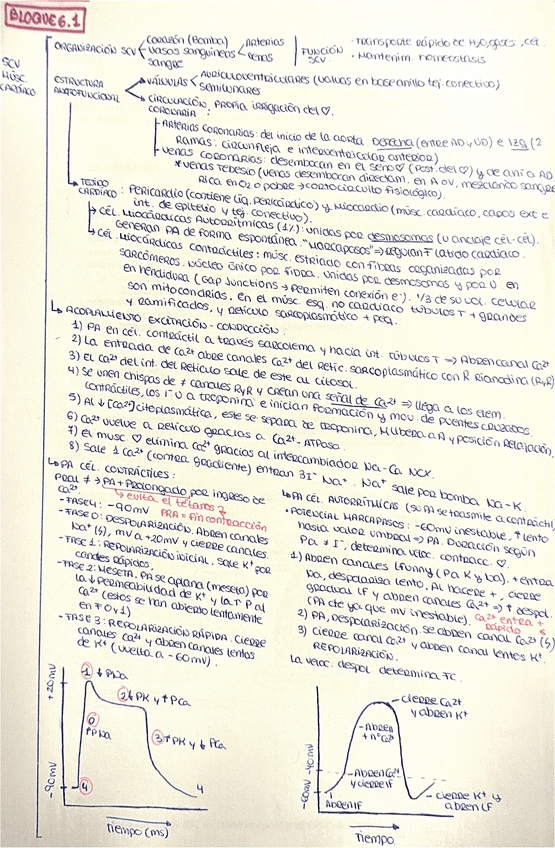 BLOQUE 6.1
SCV
MÚSC.
CARDÍACO
ORGANIZACIÓN SCV
corazón (Bomba)
Vasos sanguíneos
Arterias
Venas
sangre
FUNCIÓN
SCV
· Transporte rápido de H₂O, gases, cél.
· Mantenim. homeostasis
ESTRUCTURA
ANATOFUNCIONAL
VÁLVULAS
Auriculoventriculares (valvas en base anillo tej. conectivo)
semilunares
CIRCULACIÓN, propia irrigación del ♡.
CORONARIA:
-Arterias coronarias: del inicio de la aorta. Derecha (entre AD y VD) e Izq (2
Ramas: circunfleja e interventricular anterior)
-Venas coronarias: desembocan en el seno ♡ (Post. del ♡) y de ahí a AD
*Venas TEBESIO (venas desembocan directam. en A o V, mezclando sangre
rica en O₂ o pobre → cortocircuito fisiológico).
TEJIDO
CARDÍACO:
Pericardio (contiene líq. pericárdico) y Miocardio (músc. cardíaco, capas ext e
int. de epitelio y tej. conectivo).
CÉL. MIOCÁRDICAS AUTORRÍTMICAS (1%): unidas por desmosomas (U anclaje cél-cél).
Generan PA de forma espontánea. "MARCAPASOS" ⇒ regulan F latido cardíaco.
CÉL. MIOCÁRDICAS CONTRÁCTILES: músc. estriado con fibras organizadas por
sarcómeros. Núcleo único por fibra. Unidas por desmosomas y por U en
hendidura (Gap Junctions → permiten conexión e⁻). 1/3 de su vol. celular
son mitocondrias. En el músc. esq. no cardíaco túbulos T + grandes
y ramificados, y retículo sarcoplasmático + peq.
↳ ACOPLAMIENTO EXCITACIÓN-CONDUCCIÓN:
1) PA en cél. contráctil a través sarcolema y hacia int. túbulos T ⇒ Abren canal Ca²⁺
2) La entrada de Ca²⁺ abre canales Ca²⁺ del Retíc. sarcoplasmático con R Rianodina (RyR)
3) El Ca²⁺ del int. del Retículo sale de este al citosol.
4) Se unen chispas de ≠ canales RyR y crean una señal de Ca²⁺ ⇒ llega a los elem.
contráctiles, los I⁻ U a troponina e inician formación y mov. de puentes cruzados.
5) Al ↓[Ca²⁺] citoplasmática, este se separa de troponina, M libera a A y posición Relajación.
6) Ca²⁺ vuelve a retículo gracias a Ca²⁺-ATPasa.
7) El músc ♡ elimina Ca²⁺ gracias al intercambiador Na-Ca NCX.
8) Sale 1 Ca²⁺ (contra gradiente) entran 3 I⁻ Na⁺. Na⁺ sale por bomba Na-K.
↳ PA CÉL. CONTRÁCTILES:
Real ≠ → PA + Prolongado por ingreso de
Ca²⁺. → evita el tétanos
-FASE 4: -90mV PRA = fin contracción
-FASE 0: DESPOLARIZACIÓN. Abren canales
Na⁺ (↯), mV a +20mV y cierre canales.
-FASE 1: REPOLARIZACIÓN INICIAL. Sale K⁺ por
canales rápidos.
-FASE 2: MESETA. PA se aplana (meseta) por
la ↓ permeabilidad de K⁺ y la ↑ P al
Ca²⁺ (estos se han abierto lentamente
en F 0 y 1)
-FASE 3: REPOLARIZACIÓN RÁPIDA. Cierre
canales Ca²⁺ y abren canales lentos
de K⁺ (vuelta a -60mV).
↳ PA CÉL. AUTORRÍTMICAS (su PA se trasmite a contráctil)
• POTENCIAL MARCAPASOS: -60mV inestable, ↑ lento
hasta valor umbral ⇒ PA. Duración según
Pa ≠ I⁻, determina veloc. contracc. ♡.
1) Abren canales Ifunny (Pa K y Na). + entra
Na, despolariza lento. Al hacerse +, cierre
gradual IF y abren canales Ca²⁺ ⇒ ↑ despol.
(PA cte ya que mV inestable). Ca²⁺ entra +
rápido
2) PA, DESPOLARIZACIÓN. Se abren canal Ca²⁺ (↯)
3) cierre canal Ca²⁺ y abren canal lentos K⁺.
REPOLARIZACIÓN.
La veloc. despol. determina FC.
+20mV
-90mV
1 ↓PNa
2 ↓PK y ↑PCa
0
↑PNa
3 ↑PK y ↓PCa
4
4
Tiempo (ms)
-40mV
-60mV
-cierre Ca²⁺
y abren K⁺
-Abren
+ nº Ca²⁺
-Abren Ca²⁺
y cierre IF
Abren IF
-cierre K⁺ y
abren IF
Tiempo